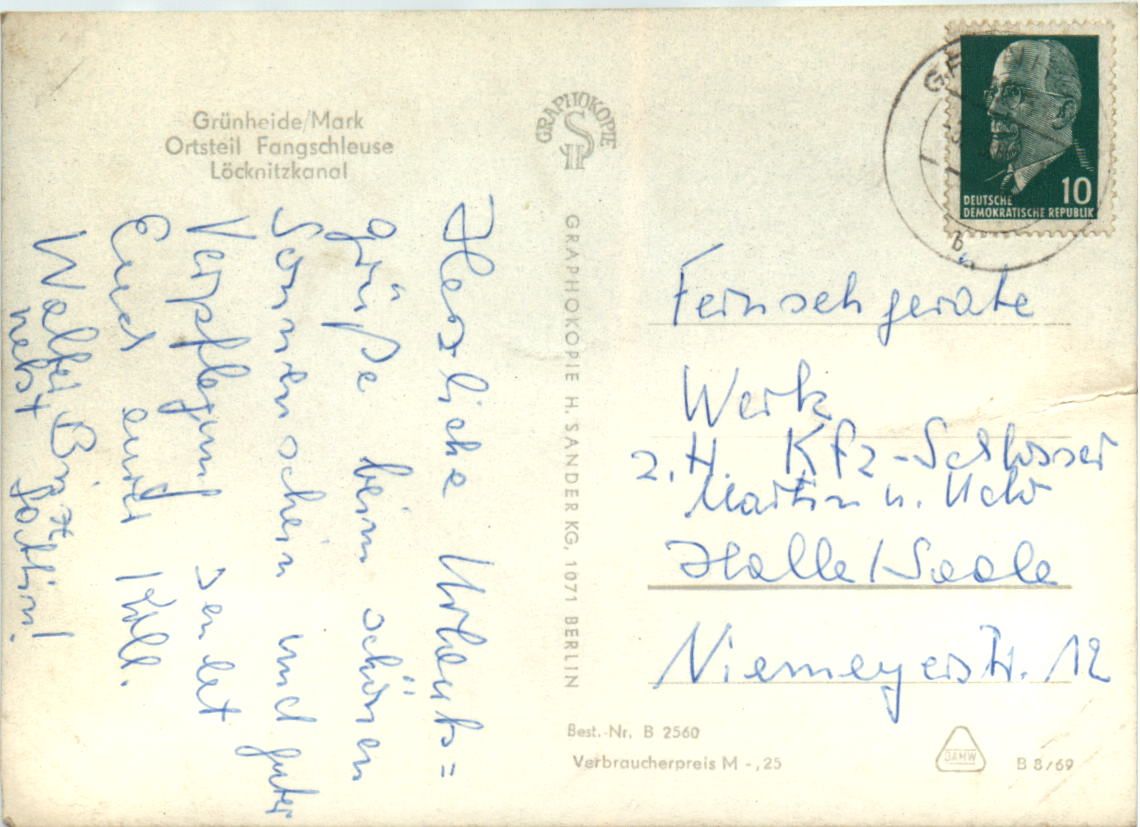 Grünheide/Mark
Ortsteil Fangschleuse
Löcknitzkanal
Herzliche Urlaubs=
grüße beim schönen
Sonnenschein und guter
Verpflegung sendet
Euch euer Koll.
nebst Gattin!
GRAPHOKOPIE
GRAPHOKOPIE H. SANDER KG, 1071 BERLIN
10
DEUTSCHE
DEMOKRATISCHE REPUBLIK
Fernsehgeräte
Werk
z.H. Kfz-Schlosser
Martin u.
Halle/Saale
Niemeyerstr. 12
Best.-Nr. B 2560
Verbraucherpreis M -,25
DAMW
B 8/69